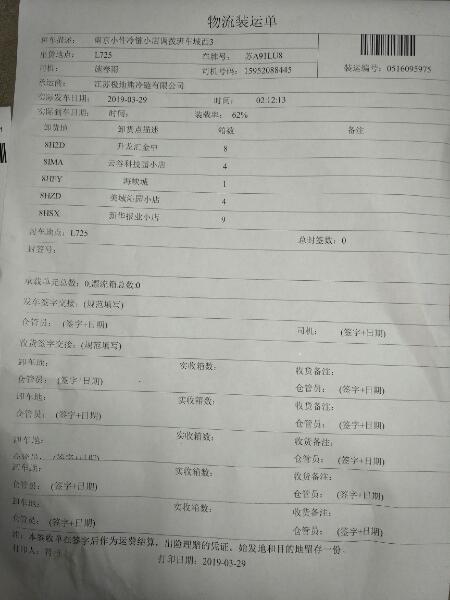 物流装运单
班车描述: 南京小件冷链小店调拨班车城西3
装货地点: L725 车牌号: 苏A91LU8
司机: 司机号码: 15952088445 装运编号: 0516095975
承运商: 江苏极地熊冷链有限公司
实际发车日期: 2019-03-29 时间: 02:12:13
实际到车日期: 时间: 装载率: 62%
卸货地 卸货点描述 箱数 备注
8H2D 升龙汇金中 8
8JMA 云谷科技园小店 4
8HFY 海峡城 1
8HZD 美域沁园小店 4
8HSX 新华报业小店 9
封车地点: L725 总封签数: 0
封签号:
承载单元总数: 0,漂流箱总数:0
发车签字交接: (规范填写)
仓管员: (签字+日期) 司机: (签字+日期)
收货签字交接: (规范填写)
卸车地: 实收箱数: 收货备注:
仓管员: (签字+日期) 仓管员: (签字+日期)
卸车地: 实收箱数: 收货备注:
仓管员: (签字+日期) 仓管员: (签字+日期)
卸车地: 实收箱数: 收货备注:
仓管员: (签字+日期) 仓管员: (签字+日期)
卸车地: 实收箱数: 收货备注:
仓管员: (签字+日期) 仓管员: (签字+日期)
卸车地: 实收箱数: 收货备注:
仓管员: (签字+日期) 仓管员: (签字+日期)
注: 本签收单在签字后作为运费结算、出险理赔的凭证、始发地和目的地留存一份.
打印人:
打印日期: 2019-03-29